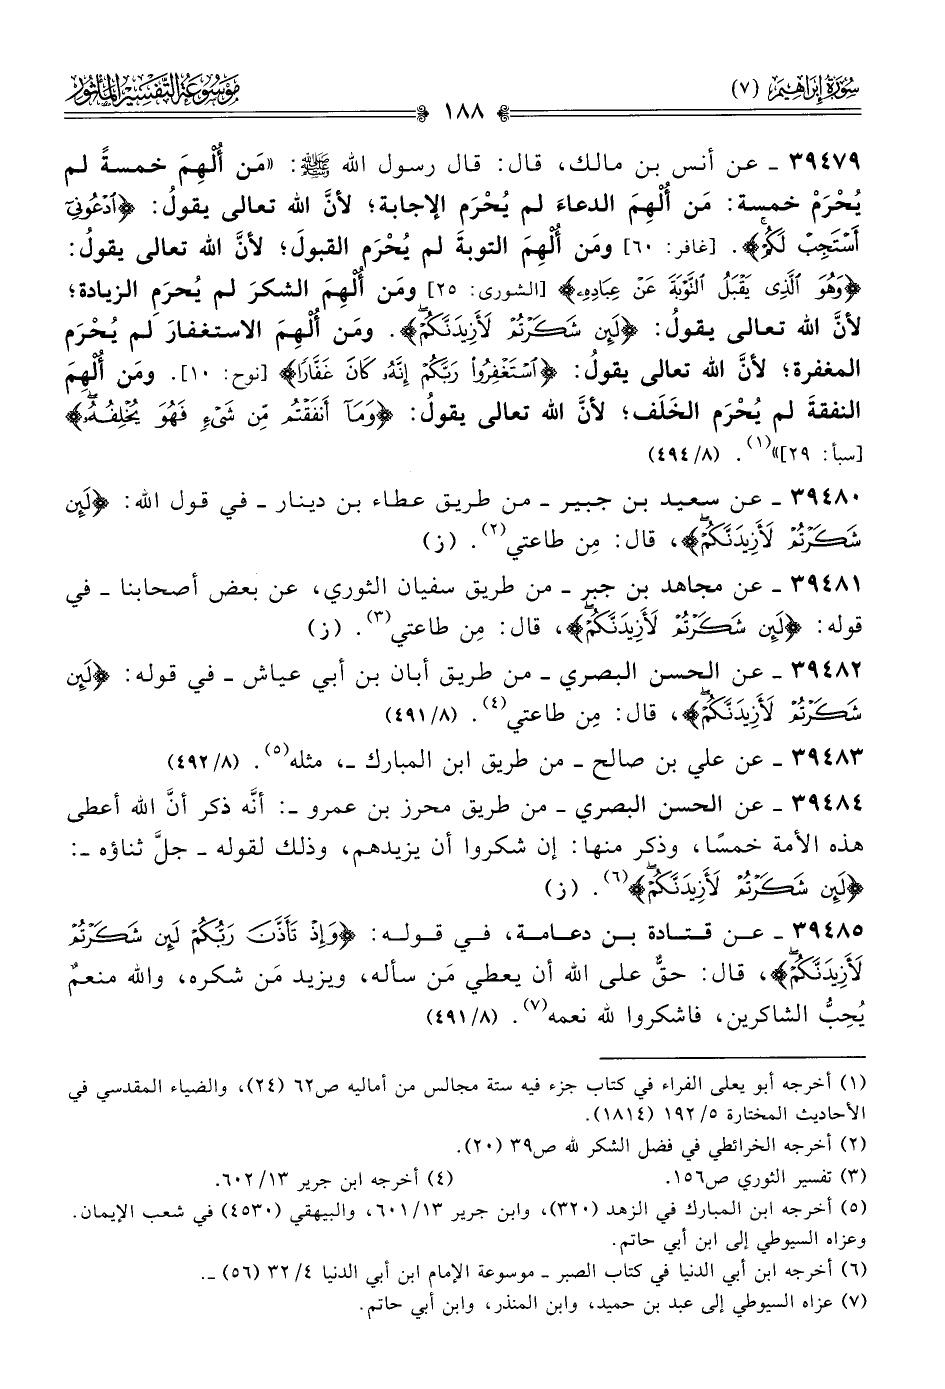 سُورَةُ إِبْرَاهِيم (٧)
١٨٨
مَوْسُوعَة التَّفْسِير المَأثُور
٣٩٤٧٩ ـ عن أنس بن مالك، قال: قال رسول الله ﷺ: «مَن أُلْهِمَ خمسةً لم
يُحْرَمْ خمسة: مَن أُلْهِمَ الدعاءَ لم يُحْرَم الإجابة؛ لأنَّ الله تعالى يقولُ: ﴿ٱدۡعُونِيٓ
أَسۡتَجِبۡ لَكُمۡۚ﴾. [غافر: ٦٠] ومَن أُلْهِمَ التوبةَ لم يُحْرَم القبولَ؛ لأنَّ الله تعالى يقولُ:
﴿وَهُوَ ٱلَّذِي يَقۡبَلُ ٱلتَّوۡبَةَ عَنۡ عِبَادِهِۦ﴾ [الشورى: ٢٥] ومَن أُلْهِمَ الشكرَ لم يُحرَمِ الزيادة؛
لأنَّ الله تعالى يقولُ: ﴿لَئِن شَكَرۡتُمۡ لَأَزِيدَنَّكُمۡۖ﴾. ومَن أُلْهِمَ الاستغفارَ لم يُحْرَم
المغفرة؛ لأنَّ الله تعالى يقولُ: ﴿ٱسۡتَغۡفِرُواْ رَبَّكُمۡ إِنَّهُۥ كَانَ غَفَّارٗا﴾ [نوح: ١٠]. ومَن أُلْهِمَ
النفقةَ لم يُحْرَم الخَلَف؛ لأنَّ الله تعالى يقولُ: ﴿وَمَآ أَنفَقۡتُم مِّن شَيۡءٖ فَهُوَ يُخۡلِفُهُۥۖ﴾
[سبأ: ٢٩]»(١). (٨/ ٤٩٤)
٣٩٤٨٠ ـ عن سعيد بن جبير ـ من طريق عطاء بن دينار ـ في قول الله: ﴿لَئِن
شَكَرۡتُمۡ لَأَزِيدَنَّكُمۡۖ﴾، قال: مِن طاعتي(٢). (ز)
٣٩٤٨١ ـ عن مجاهد بن جبر ـ من طريق سفيان الثوري، عن بعض أصحابنا ـ في
قوله: ﴿لَئِن شَكَرۡتُمۡ لَأَزِيدَنَّكُمۡۖ﴾، قال: مِن طاعتي(٣). (ز)
٣٩٤٨٢ ـ عن الحسن البصري ـ من طريق أبان بن أبي عياش ـ في قوله: ﴿لَئِن
شَكَرۡتُمۡ لَأَزِيدَنَّكُمۡۖ﴾، قال: مِن طاعتي(٤). (٨/ ٤٩١)
٣٩٤٨٣ ـ عن علي بن صالح ـ من طريق ابن المبارك ـ، مثله(٥). (٨/ ٤٩٢)
٣٩٤٨٤ ـ عن الحسن البصري ـ من طريق محرز بن عمرو ـ: أنَّه ذكر أنَّ الله أعطى
هذه الأمة خمسًا، وذكر منها: إن شكروا أن يزيدهم، وذلك لقوله ـ جلَّ ثناؤه ـ:
﴿لَئِن شَكَرۡتُمۡ لَأَزِيدَنَّكُمۡۖ﴾(٦). (ز)
٣٩٤٨٥ ـ عن قتادة بن دعامة، في قوله: ﴿وَإِذۡ تَأَذَّنَ رَبُّكُمۡ لَئِن شَكَرۡتُمۡ
لَأَزِيدَنَّكُمۡۖ﴾، قال: حقٌّ على الله أن يعطي مَن سأله، ويزيد مَن شكره، والله منعمٌ
يُحِبُّ الشاكرين، فاشكروا لله نعمه(٧). (٨/ ٤٩١)
(١) أخرجه أبو يعلى الفراء في كتاب جزء فيه ستة مجالس من أماليه ص٦٢ (٢٤)، والضياء المقدسي في
الأحاديث المختارة ٥/ ١٩٢ (١٨١٤).
(٢) أخرجه الخرائطي في فضل الشكر لله ص٣٩ (٢٠).
(٣) تفسير الثوري ص١٥٦. (٤) أخرجه ابن جرير ١٣/ ٦٠٢.
(٥) أخرجه ابن المبارك في الزهد (٣٢٠)، وابن جرير ١٣/ ٦٠١، والبيهقي (٤٥٣٠) في شعب الإيمان.
وعزاه السيوطي إلى ابن أبي حاتم.
(٦) أخرجه ابن أبي الدنيا في كتاب الصبر ـ موسوعة الإمام ابن أبي الدنيا ٤/ ٣٢ (٥٦) ـ.
(٧) عزاه السيوطي إلى عبد بن حميد، وابن المنذر، وابن أبي حاتم.